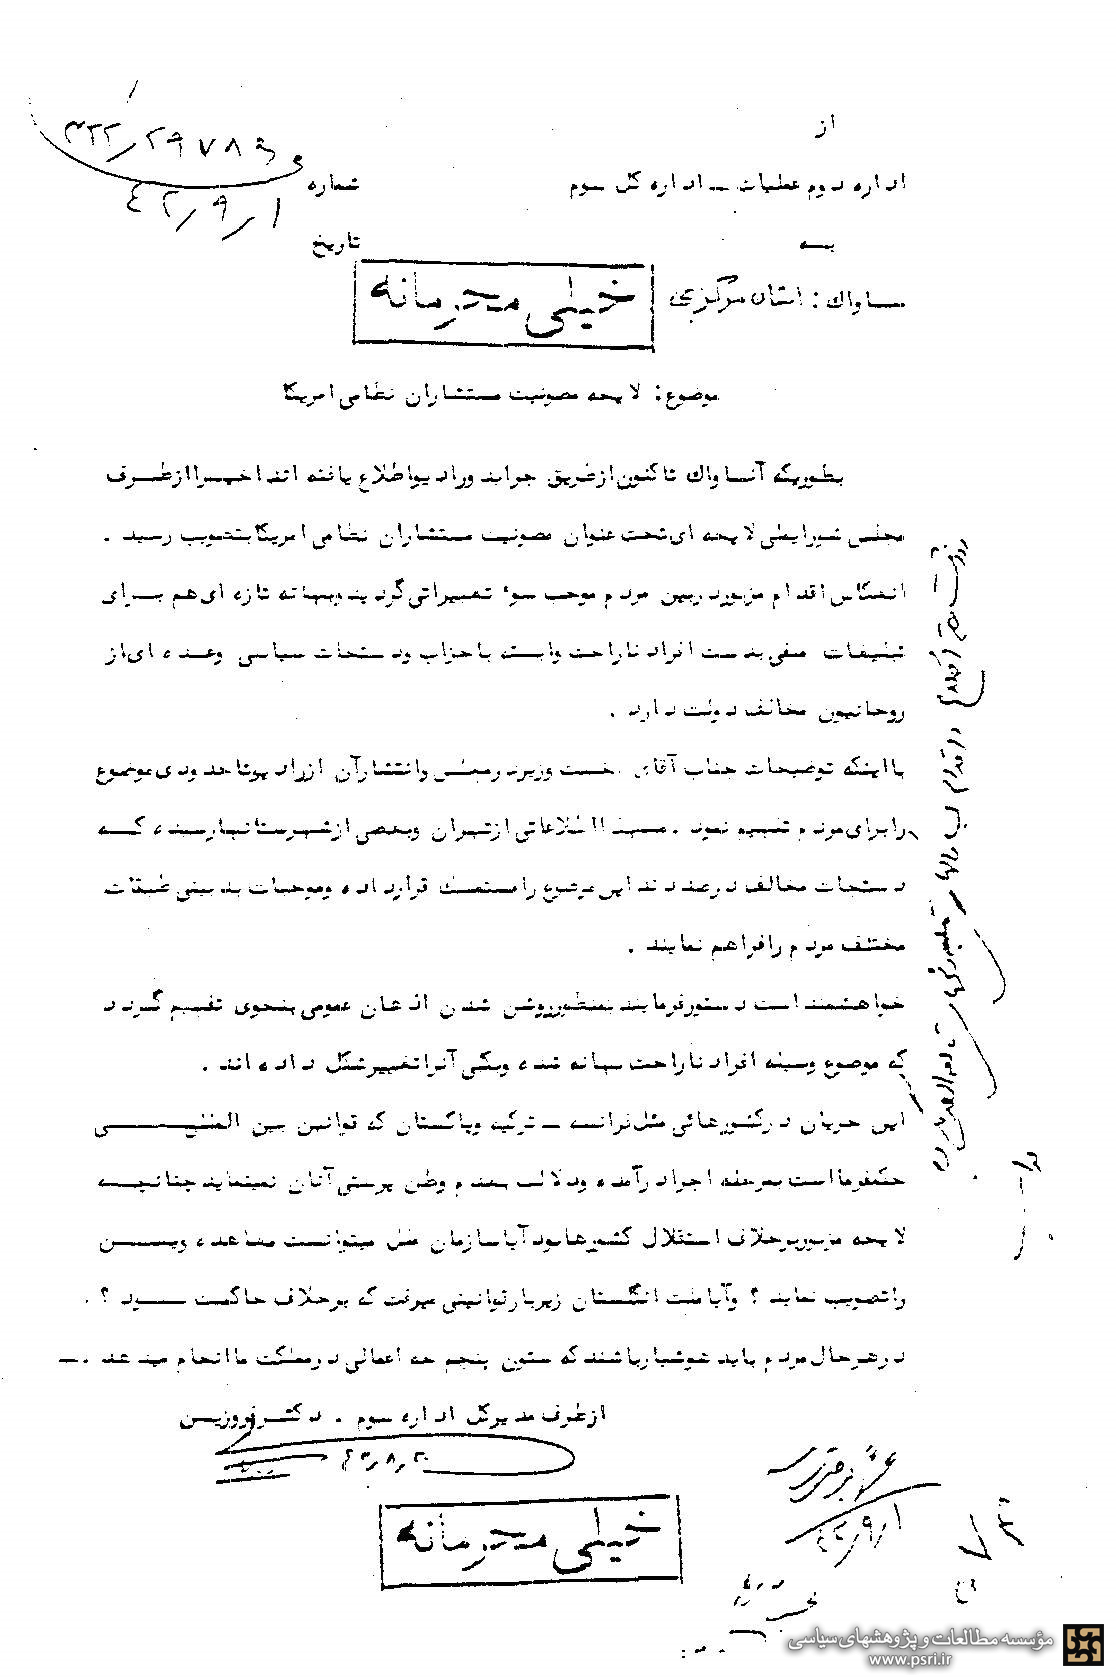 از
اداره دوم عملیات ــ اداره کل سوم
شماره ۳۲۲/۲۹۷۸۹
۴۳/۹/۱
بـه
تاریخ
ساواك : استان مرکزی
خیلی محرمانه
موضوع : لایحه مصونیت مستشاران نظامی امریکا
بطوریکه آنساواك تاکنون ازطریق جراید ورادیواطلاع یافته انداخیراازطرف
مجلس شورایملی لایحه ای تحت عنوان مصونیت مستشاران نظامی امریکابتصویب رسید .
انعکاس اقدام مزبوردربین مردم موجب سوء تعبیراتی گردیدوبهانه تازه ای هم برای
تبلیغات منفی بدست افراد ناراحت وابسته باحزاب ودستجات سیاسی وعده ای از
روحانیون مخالف دولت دارد .
بااینکه توضیحات جناب آقای نخست وزیردرمجلس وانتشارآن ازرادیوتاحدودی موضوع
رابرای مردم تفهیم نمود . معهذا اطلاعاتی ازتهران وبعضی ازشهرستانهارسیده که
دستجات مخالف درصددند این موضوع رامستمسك قرارداده وموجبات بدبینی طبقات
مختلف مردم رافراهم نمایند .
خواهشمند است دستورفرمایند بمنظورروشن شدن اذهان عمومی بنحوی تفهیم گردد
که موضوع وسیله افراد ناراحت بهانه شده وبکلی آنراتغییرشکل داده اند .
این جریان درکشورهائی مثل فرانسه ــ ترکیه وپاکستان که قوانین بین المللی
حکمفرمااست بمرحله اجرادرآمده ودلالت بعدم وطن پرستی آنان نمینماید چنانچه
لایحه مزبوربرخلاف استقلال کشورهابود آیاسازمان ملل میتوانست معاهده وین
راتصویب نماید ؟ وآیاملت انگلستان زیربارقوانینی میرفت که برخلاف حاکمیت بود ؟ .
درهرحال مردم باید هوشیارباشندکه ستون پنجم چه اعمالی درمملکت ماانجام میدهد . ــ
ازطرف مدیرکل اداره سوم .
خیلی محرمانه
۴۳/۹/۱
مؤسسه مطالعات و پژوهشهای سیاسی
www.psri.ir